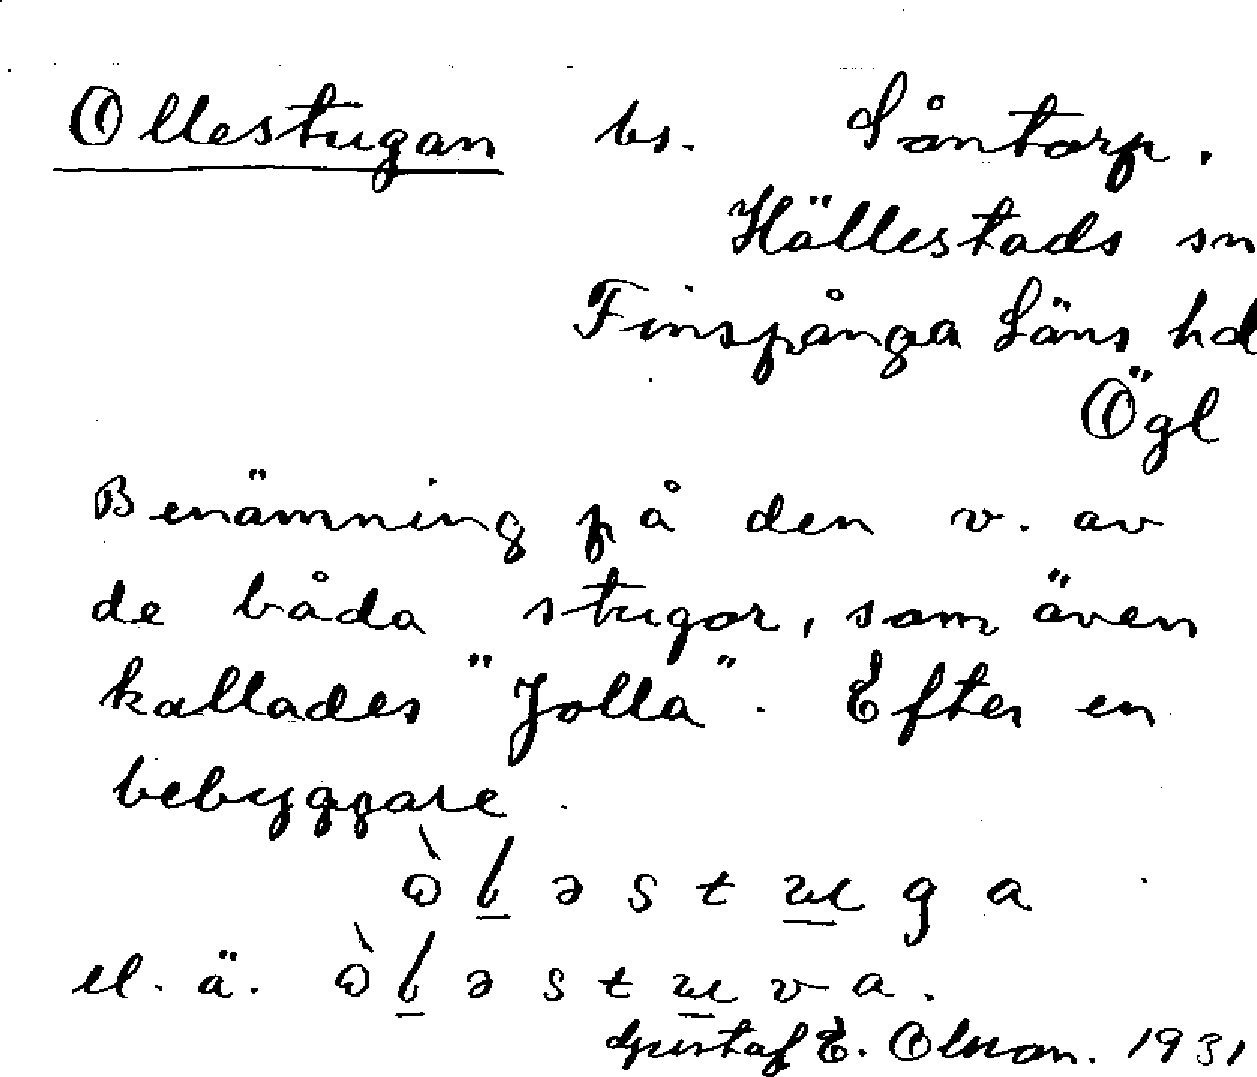 Ollestugan bs. Såntorp.
Hällestads sn
Finspånga Läns hd
Ögl
Benämning på den v. av
de båda stugor, som även
kallades "Jolla". Efter en
bebyggare.
ɷ̀l̲əstu̲ga
el. ä. ɷ̀l̲əstu̲va.
Gustaf E. Olsson. 1931